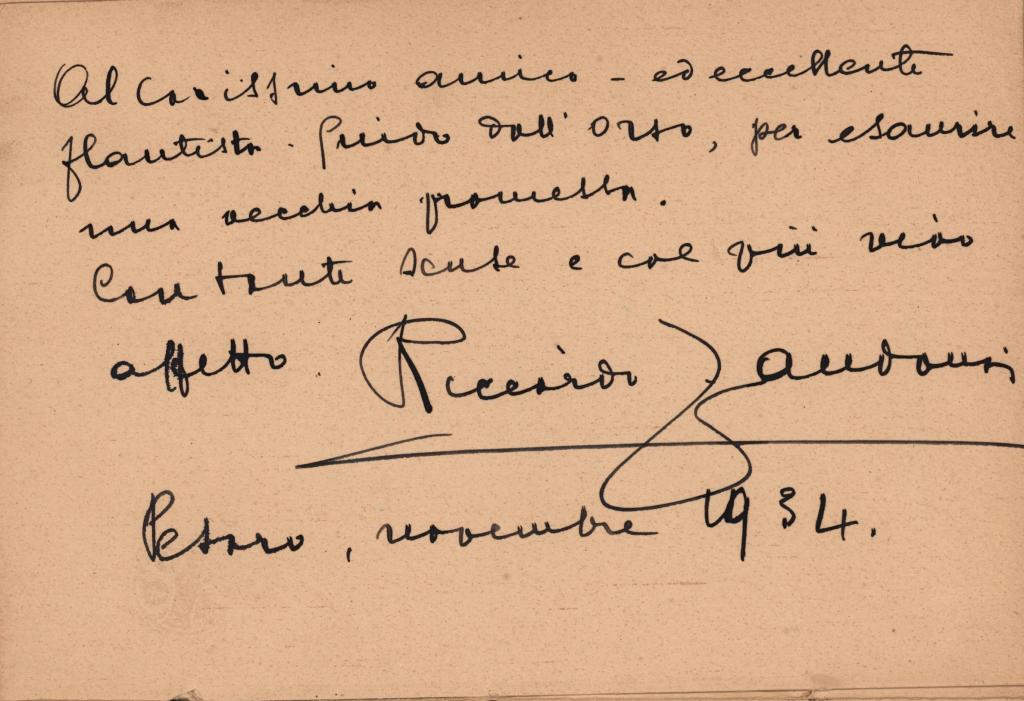 Al carissimo amico - ed eccellente
flautista. Guido dall'Orso, per esaurire
una vecchia promessa.
Con tante scuse e col più vivo
affetto. Riccardo Zandonai
Pesaro, novembre 1934.